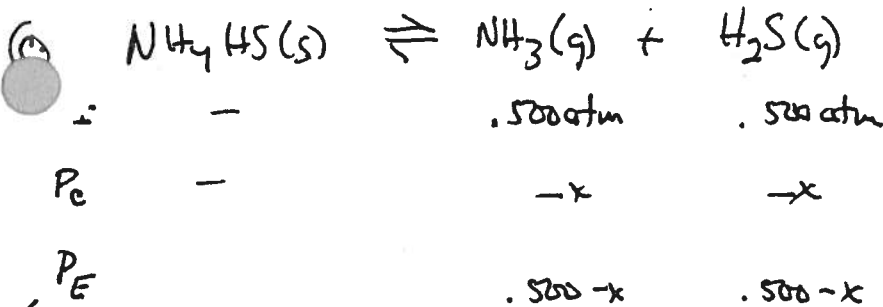 NH4HS(s) ⇌ NH3(g) + H2S(g)
i - .500atm .500atm
Pc - -x -x
PE .500-x .500-x